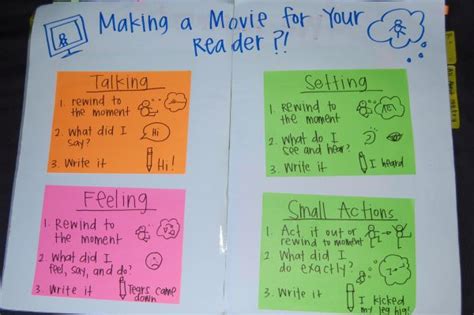 Making a Movie for Your
Reader?!
Talking
1. rewind to
the moment
2. What did I
say?
Hi
3. Write it
Hi!
Setting
1. Rewind to
the moment
2. What do I
see and hear?
3. Write it
I heard
Feeling
1. Rewind to
the moment
2. What did I
feel, say, and do?
3. Write it
Tears came
down
Small Actions
1. Act it out or
rewind to moment
2. What did I
do exactly?
3. Write it
I kicked
my leg high!